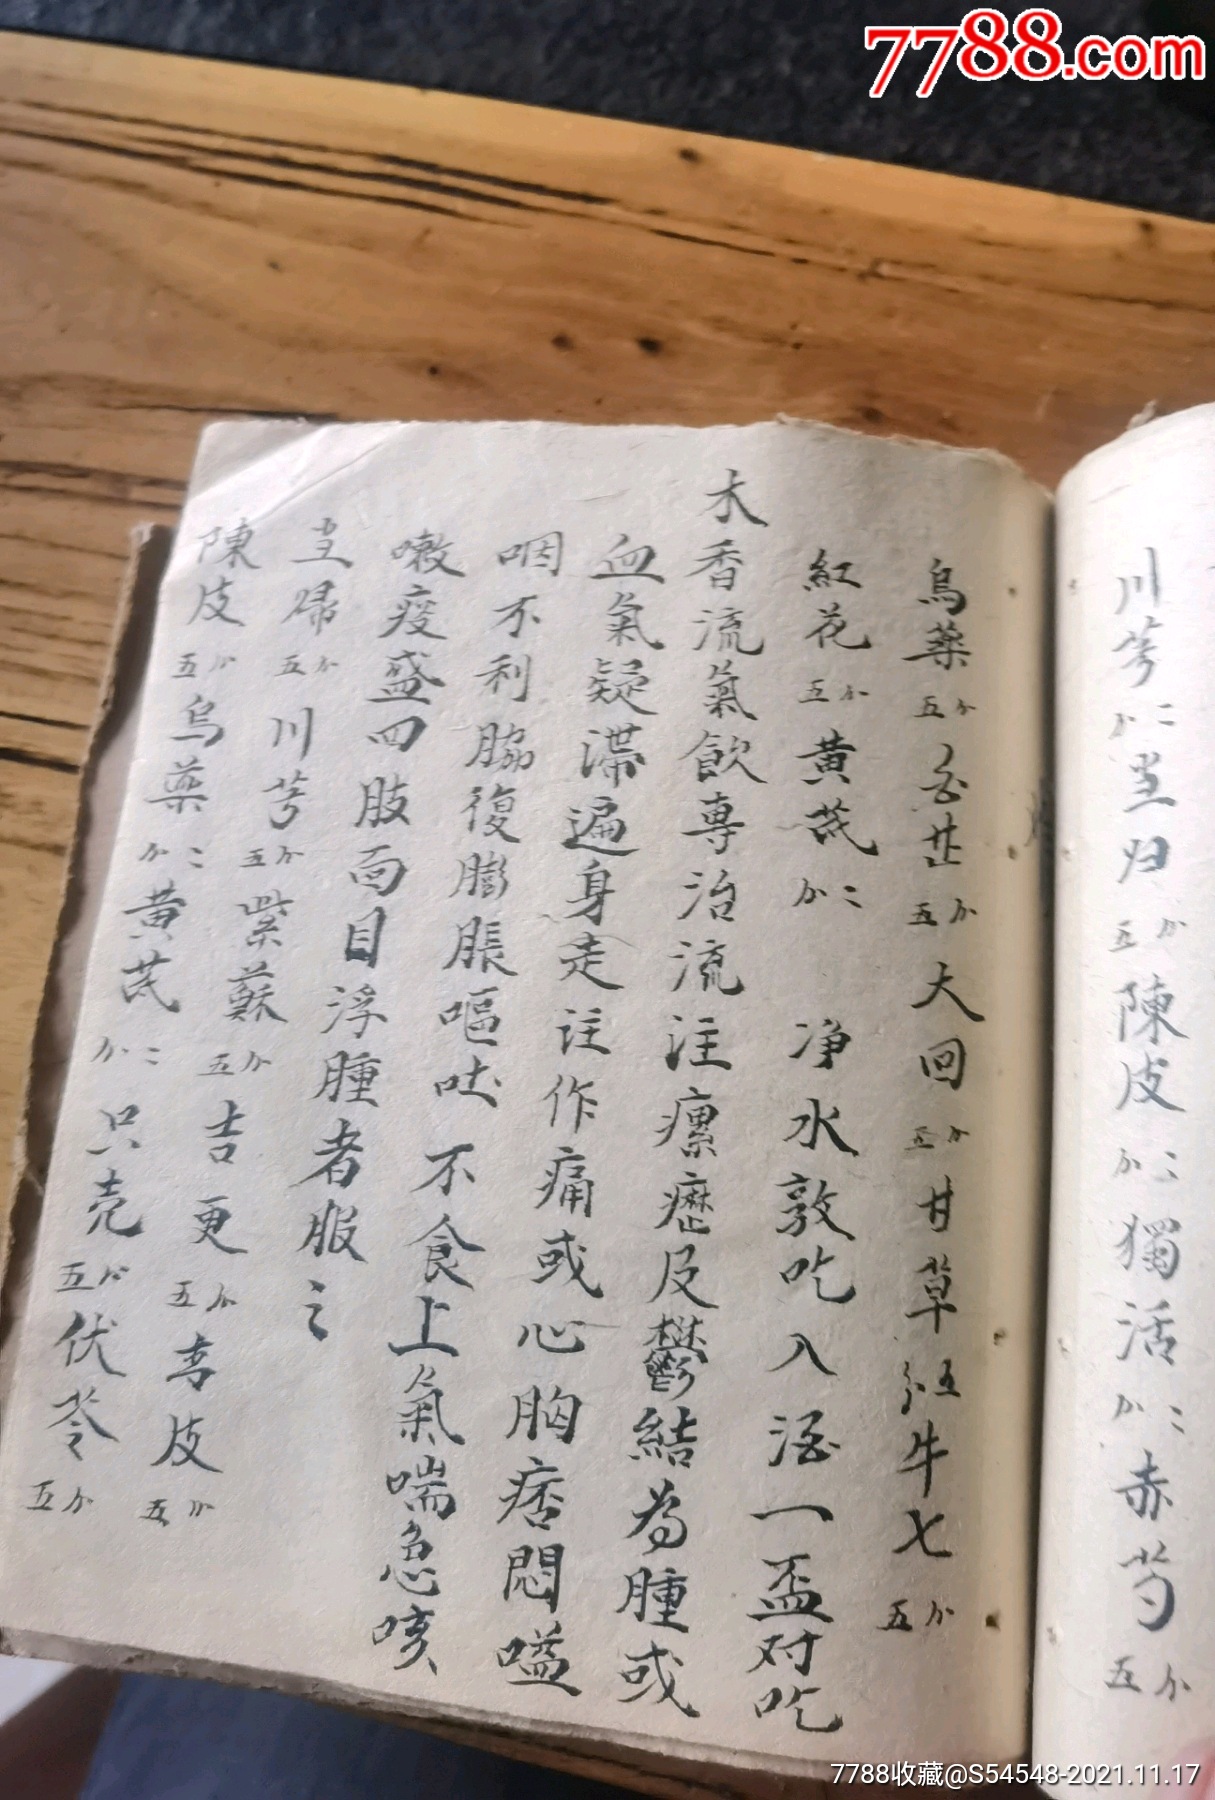 7788.com
川芎二分당归五分陳皮二分獨活二分赤芍五分
烏藥五分白芷五分大回五分甘草五分牛七五分
紅花五分黄芪二分 净水敦吃入酒一盃对吃
木香流氣飲專治流注瘰癧及鬱結為腫或
血氣疑滯遍身走注作痛或心胸痞悶嗌
咽不利脇復膨脹嘔吐不食上氣喘急咳
嗽痰盛四肢面目浮腫者服之
当歸五分川芎五分紫蘇五分吉更五分青皮五分
陳皮五分烏藥二分黄芪二分只壳五分伏苓五分
7788收藏@S54548-2021.11.17